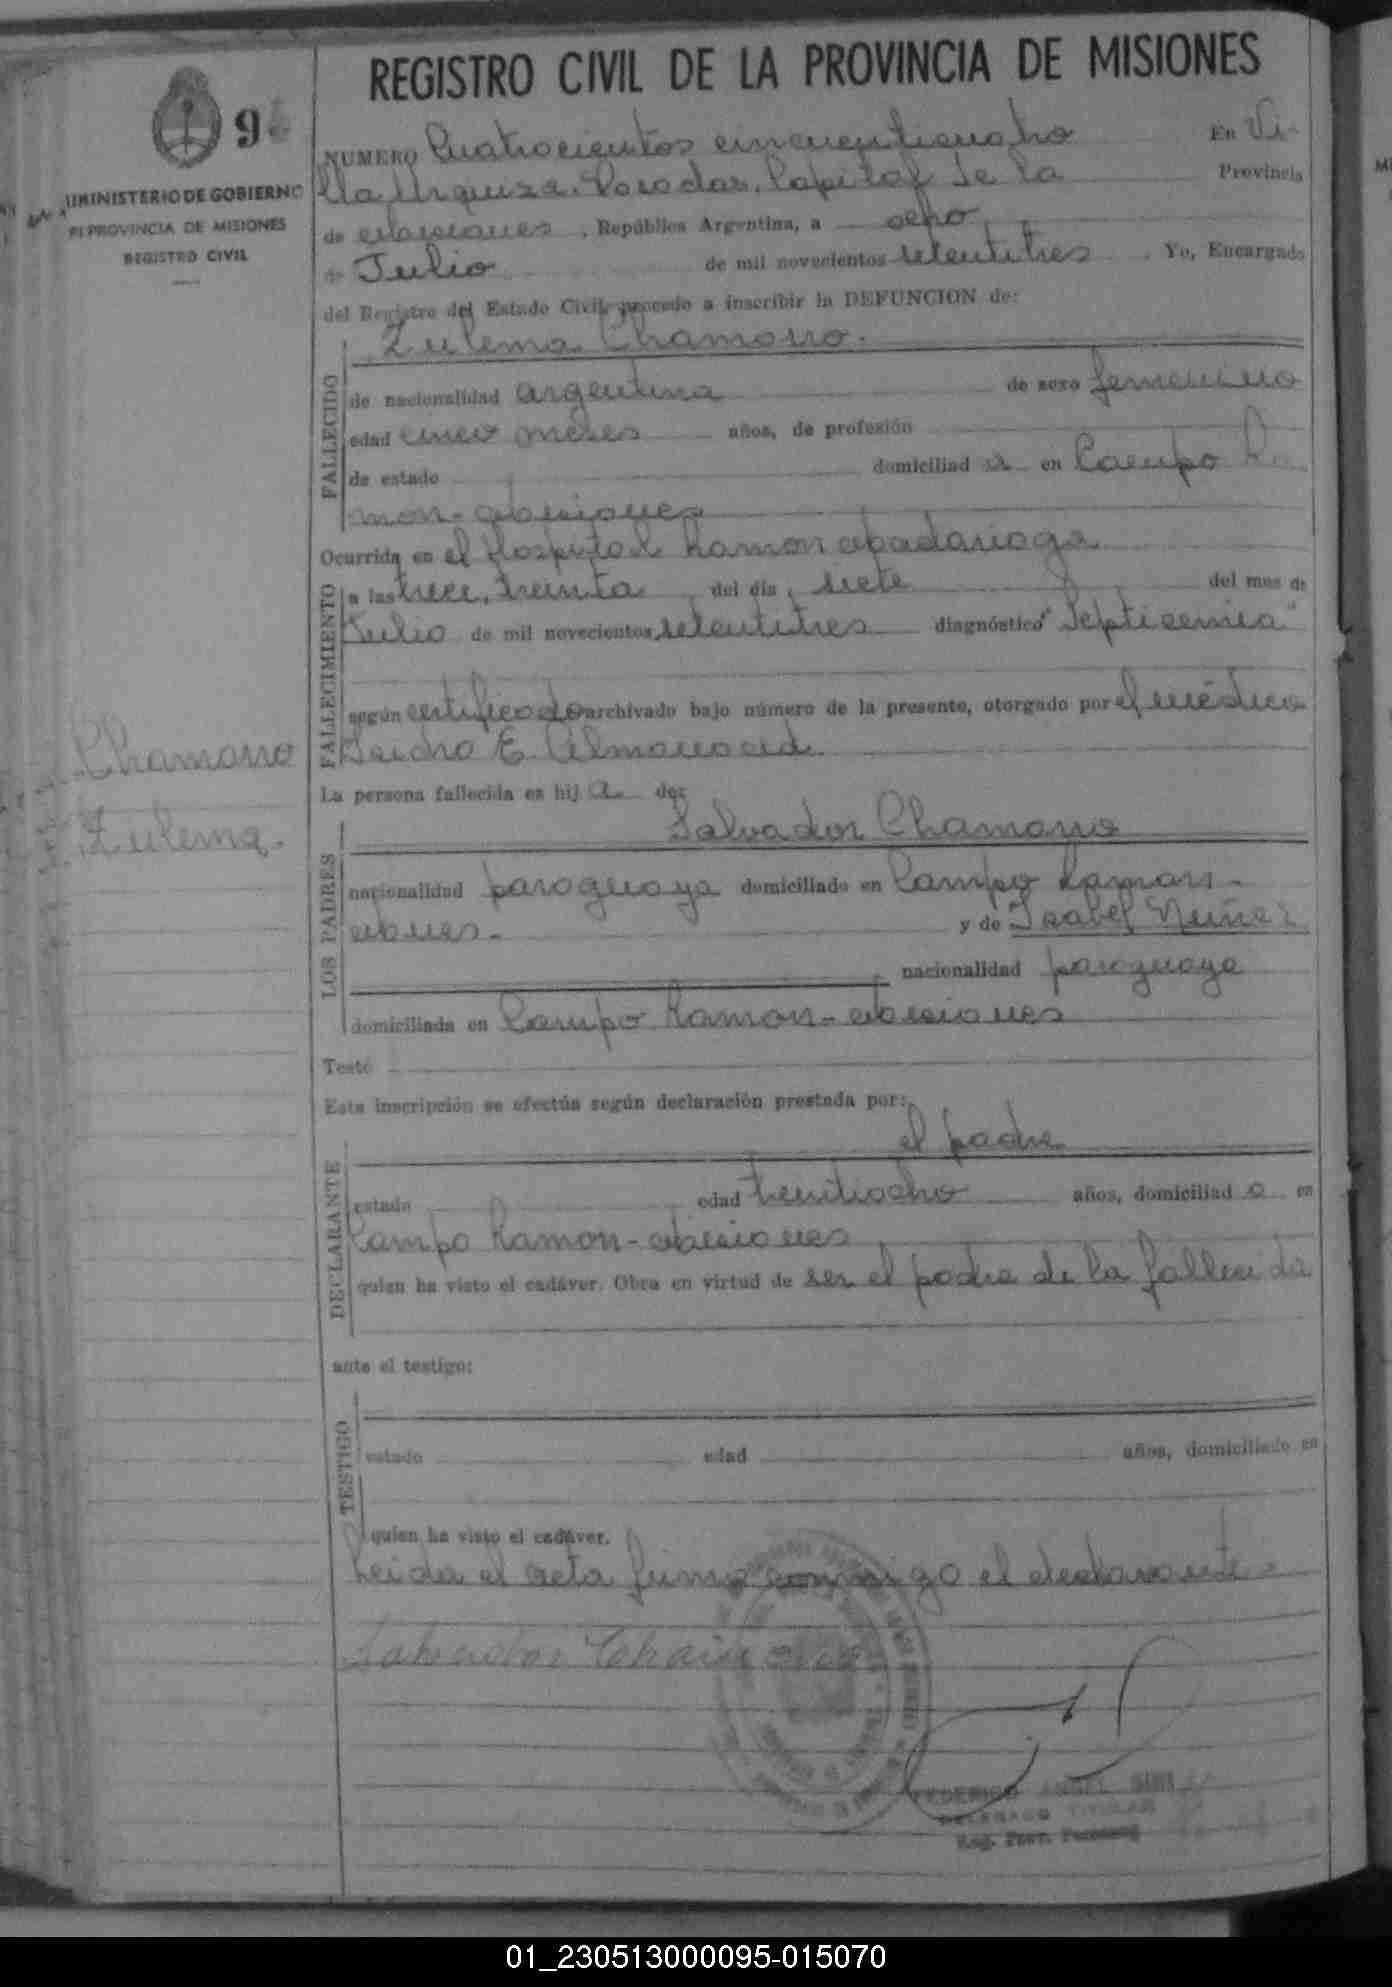 REGISTRO CIVIL DE LA PROVINCIA DE MISIONES
9
MINISTERIO DE GOBIERNO
PROVINCIA DE MISIONES
REGISTRO CIVIL
NUMERO Cuatrocientos cincuenticuatro En Vi-
lla Urquiza. Posadas. Capital de la Provincia
de Misiones, República Argentina, a ocho
de Julio de mil novecientos setentitres. Yo, Encargado
del Registro del Estado Civil, procedo a inscribir la DEFUNCION de:
Zulema Chamorro.
FALLECIDO
de nacionalidad argentina de sexo femenino
edad cinco meses años, de profesión
de estado domiciliada en Campo Ra
mon-Misiones
Ocurrida en el Hospital Ramon Madariaga
FALLECIMIENTO
a las trece, treinta del día siete del mes de
Julio de mil novecientos setentitres diagnóstico "Septicemia"
según certificado archivado bajo número de la presente, otorgado por el médico
E.
Chamorro
Zulema.
La persona fallecida es hija de:
Salvador Chamorro
LOS PADRES
nacionalidad paraguaya domiciliado en Campo Ramon-
y de Isabel Nuñez
nacionalidad paraguaya
domiciliada en Campo Ramon-Misiones
Testó
Esta inscripción se efectúa según declaración prestada por:
el padre
DECLARANTE
estado edad treintiocho años, domiciliado en
Campo Ramon-Misiones
quien ha visto el cadáver. Obra en virtud de ser el padre de la fallecida
ante el testigo:
TESTIGO
estado edad años, domiciliado en
quien ha visto el cadáver.
Leida el acta firma conmigo el declarante-
Salvador Chamorro
FEDERICO ANGEL
DELEGADO TITULAR
01_230513000095-015070